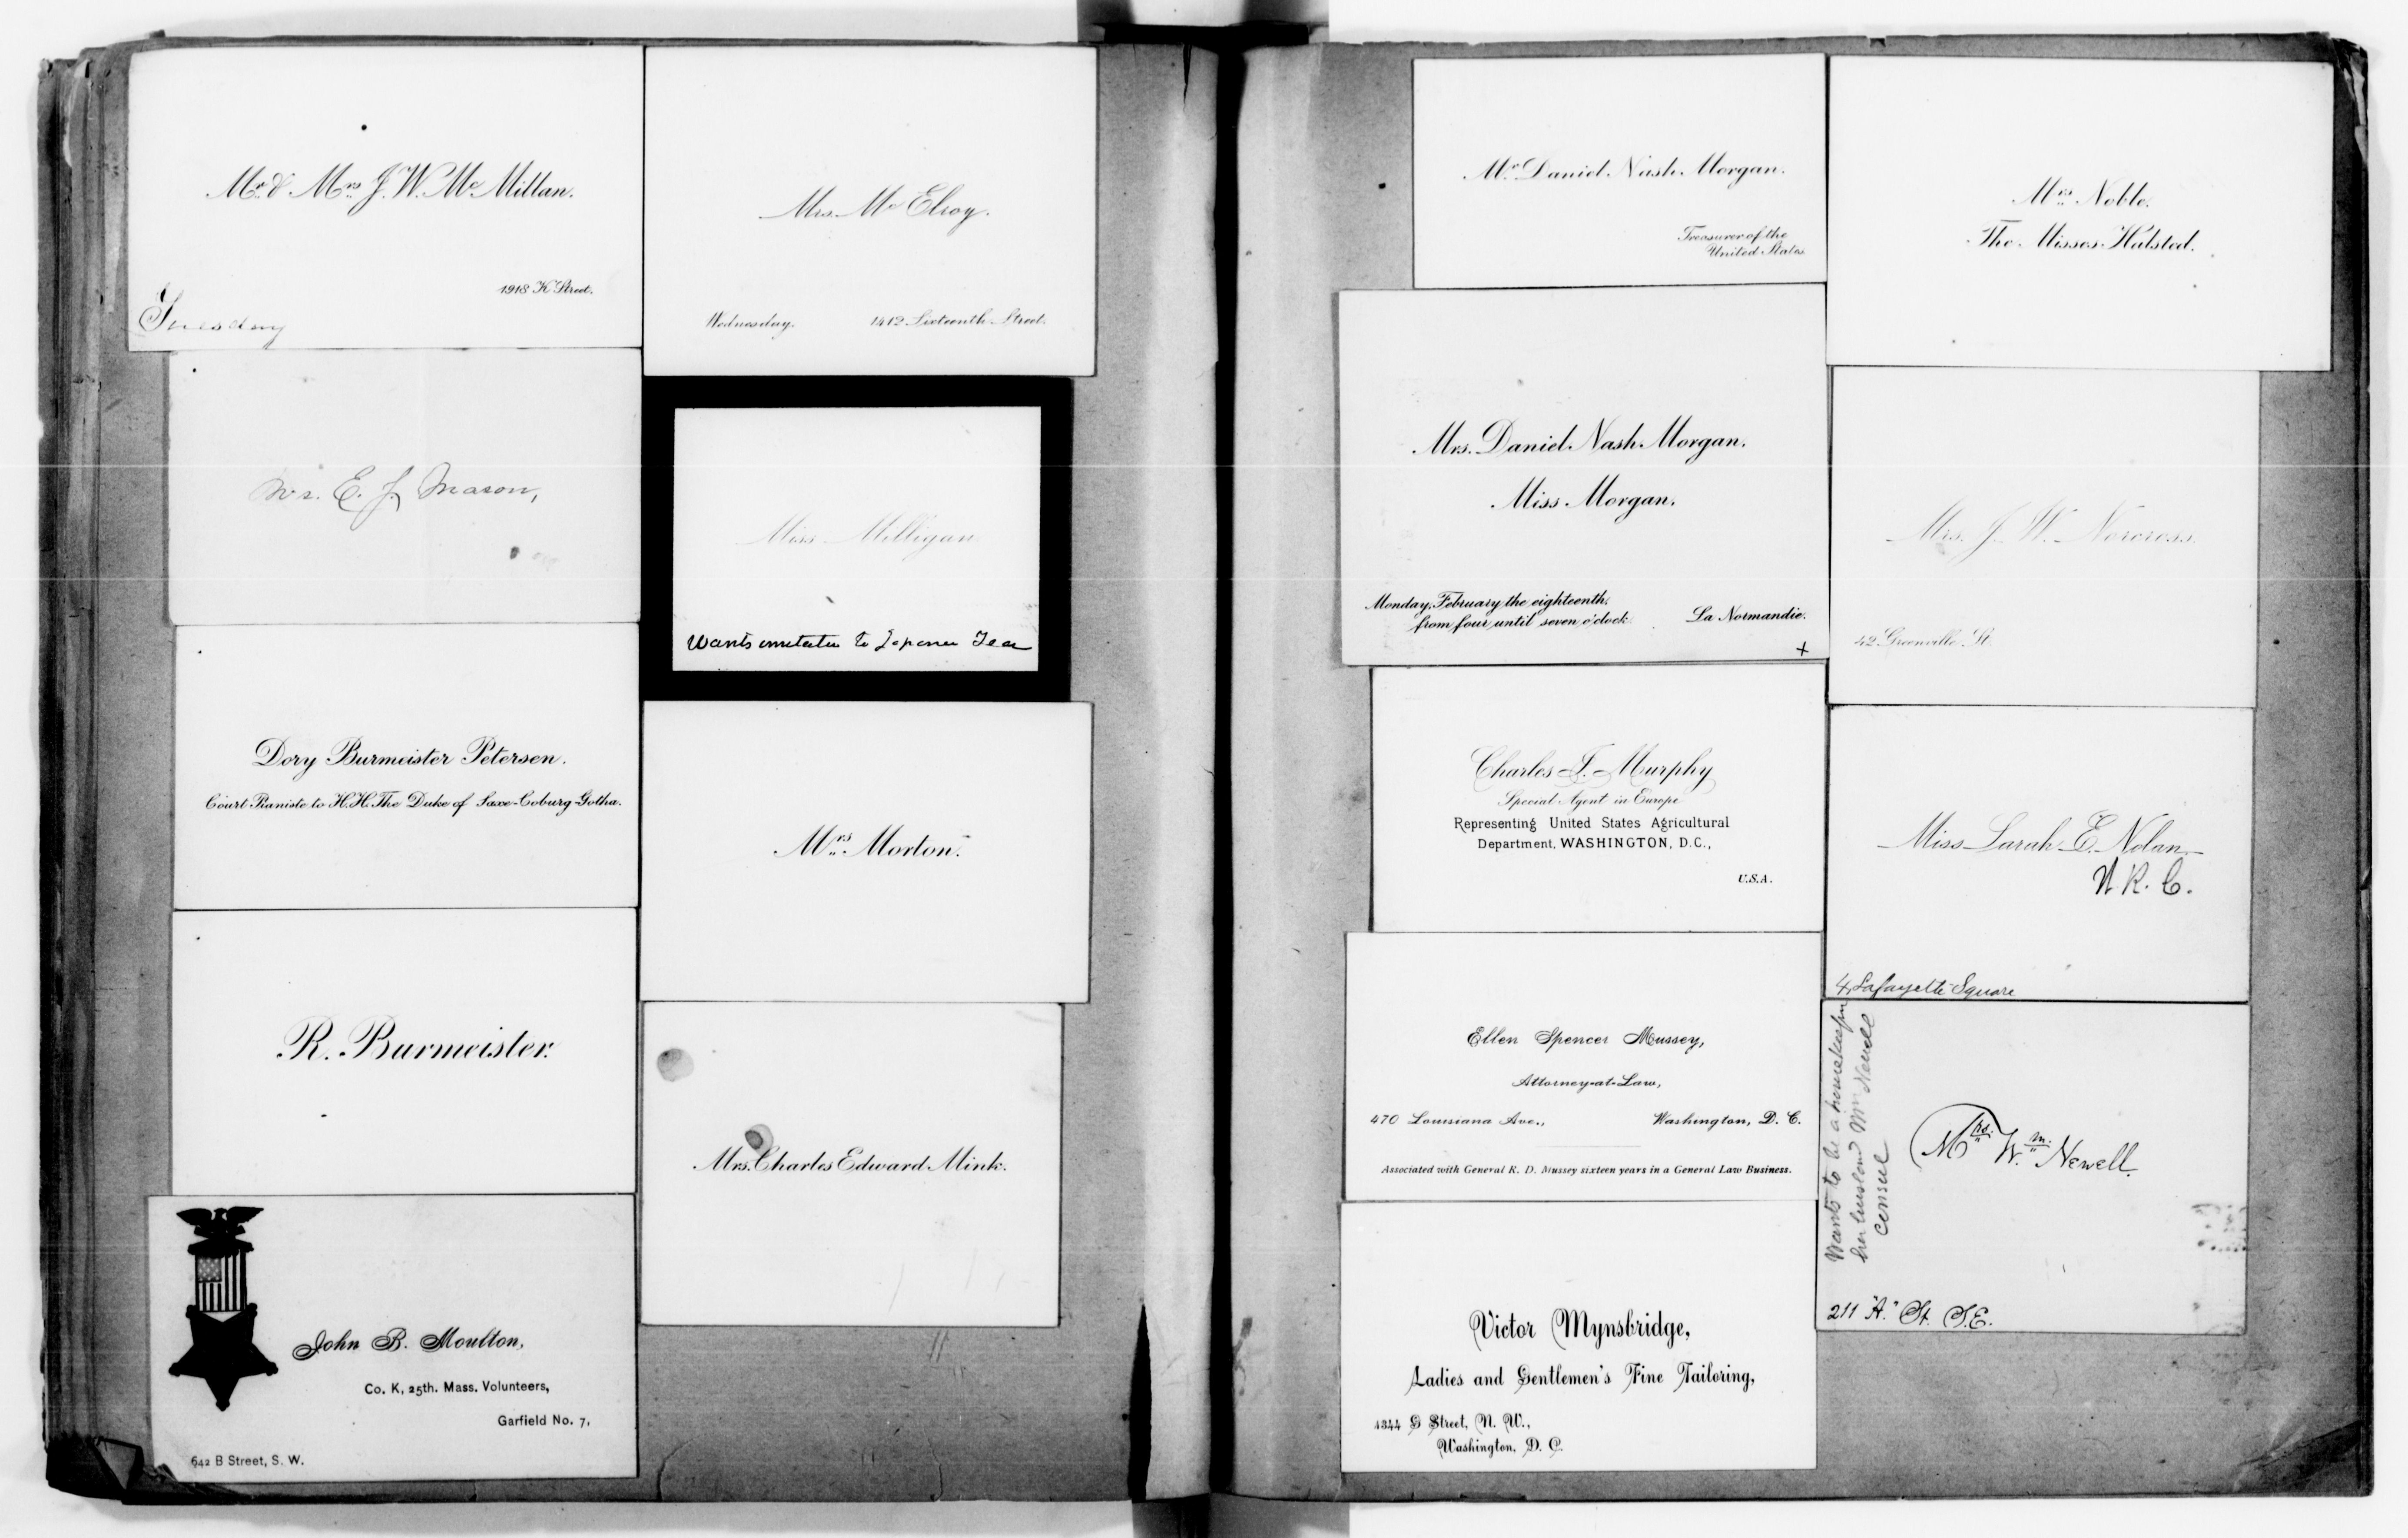 Mr. & Mrs. J. W. Mc Millan.
1918 K Street.
Tuesday
Mrs. E. J. Mason,
Dory Burmeister Petersen.
Court Pianiste to H.H. The Duke of Saxe-Coburg-Gotha.
R. Burmeister.
John B. Moulton,
Co. K, 25th. Mass. Volunteers,
Garfield No. 7,
642 B Street, S. W.
Mrs. Mc Elroy.
Wednesday. 1412 Sixteenth Street.
Miss Milligan
Wants to Tea
Mrs. Morton.
Mrs. Charles Edward Mink.
Mr. Daniel Nash Morgan.
Treasurer of the
United States
Mrs. Daniel Nash Morgan.
Miss Morgan.
Monday, February the eighteenth,
from four until seven o'clock
La Normandie.
x
Charles J. Murphy
Special Agent in Europe
Representing United States Agricultural
Department, WASHINGTON, D.C.,
U.S.A.
Ellen Spencer Mussey,
Attorney-at-Law,
470 Louisiana Ave., Washington, D. C.
Associated with General R. D. Mussey sixteen years in a General Law Business.
Victor Mynsbridge,
Ladies and Gentlemen's Fine Tailoring,
1344 G Street, N. W.,
Washington, D. C.
Mrs. Noble.
The Misses Halsted.
Mrs. J. W. Norcross.
42 Greenville St.
Miss Sarah E. Nolan
W. R. C.
4 Lafayette Square
Wants to be a housekeeper
her husband Wm Newell
consul
Mrs. Wm. Newell.
211 "A." St. S.E.